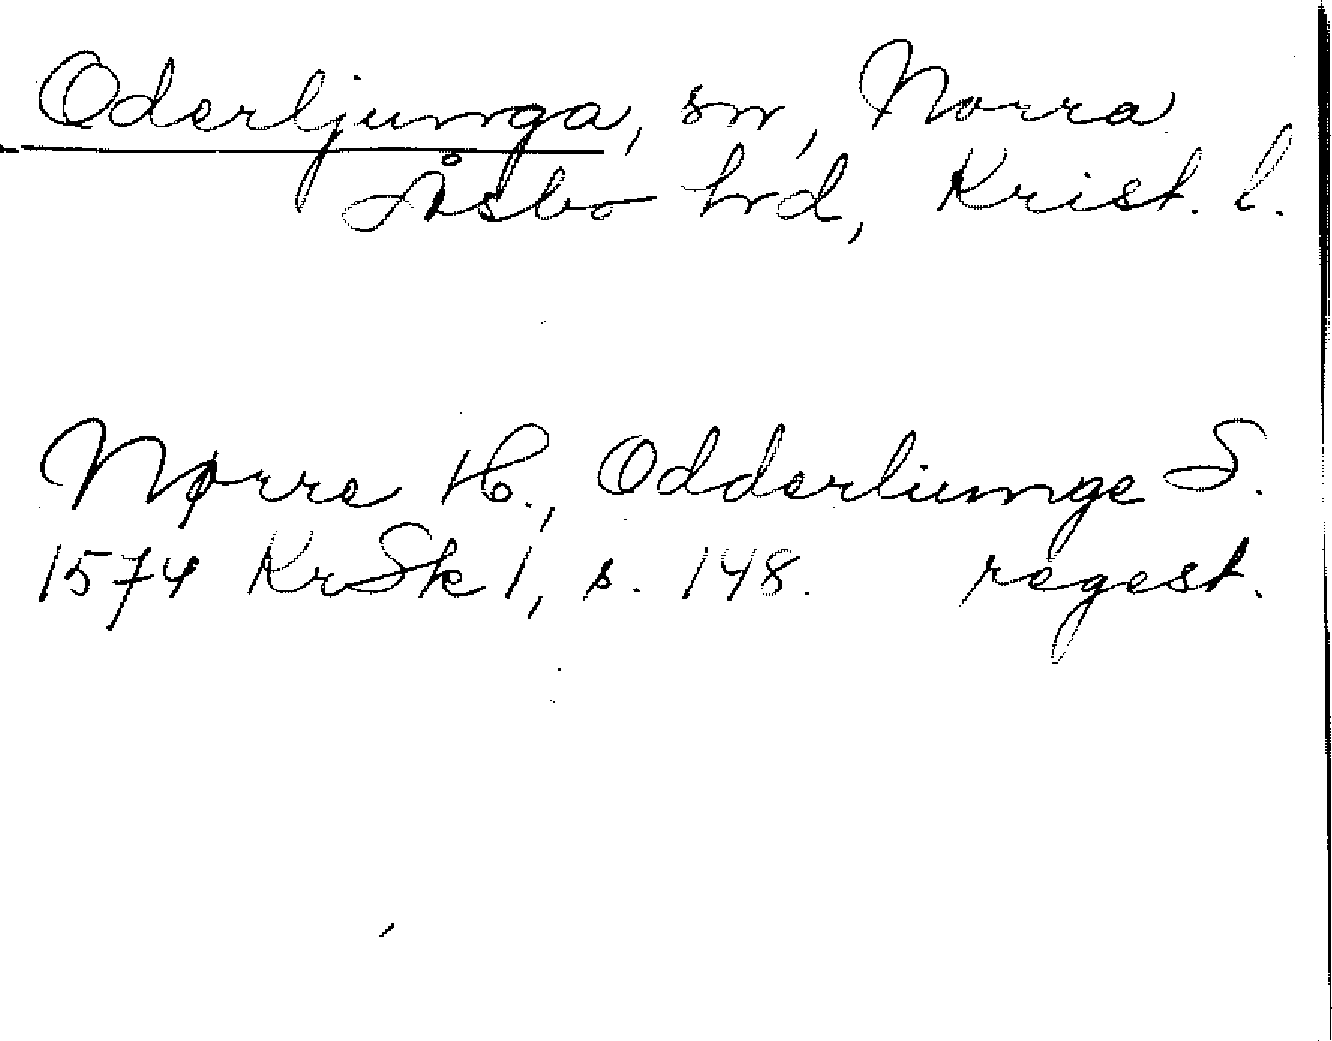 Oderljunga, sn, Norra
Åsbo hrd, Krist. l.
Nørre H., Odderliunge S.
1574 KrSk 1, s. 148. regest.